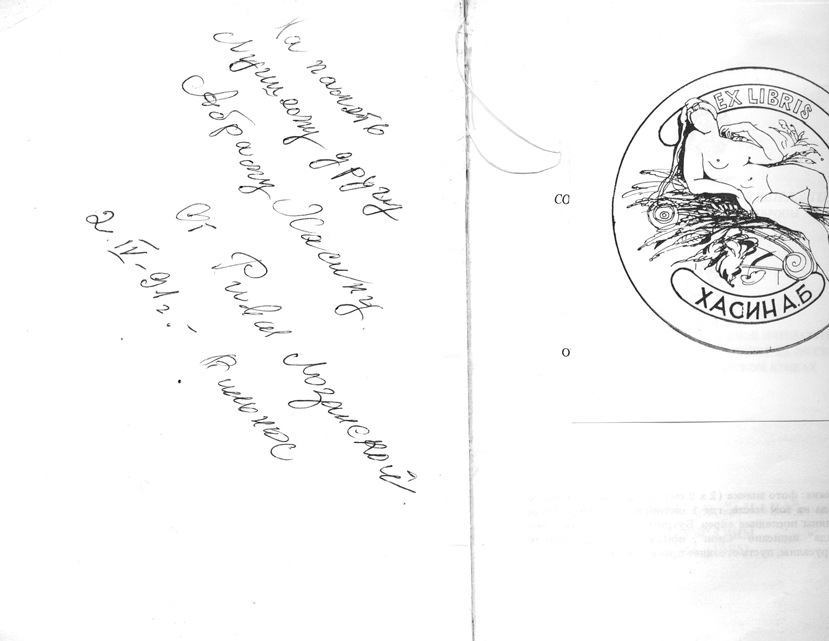 На память
Лучшему другу
Абраму Хасину.
От Ривы Лозанской
2.IV-91г. Вильнюс
EX LIBRIS
ХАСИН А.Б
СО
О